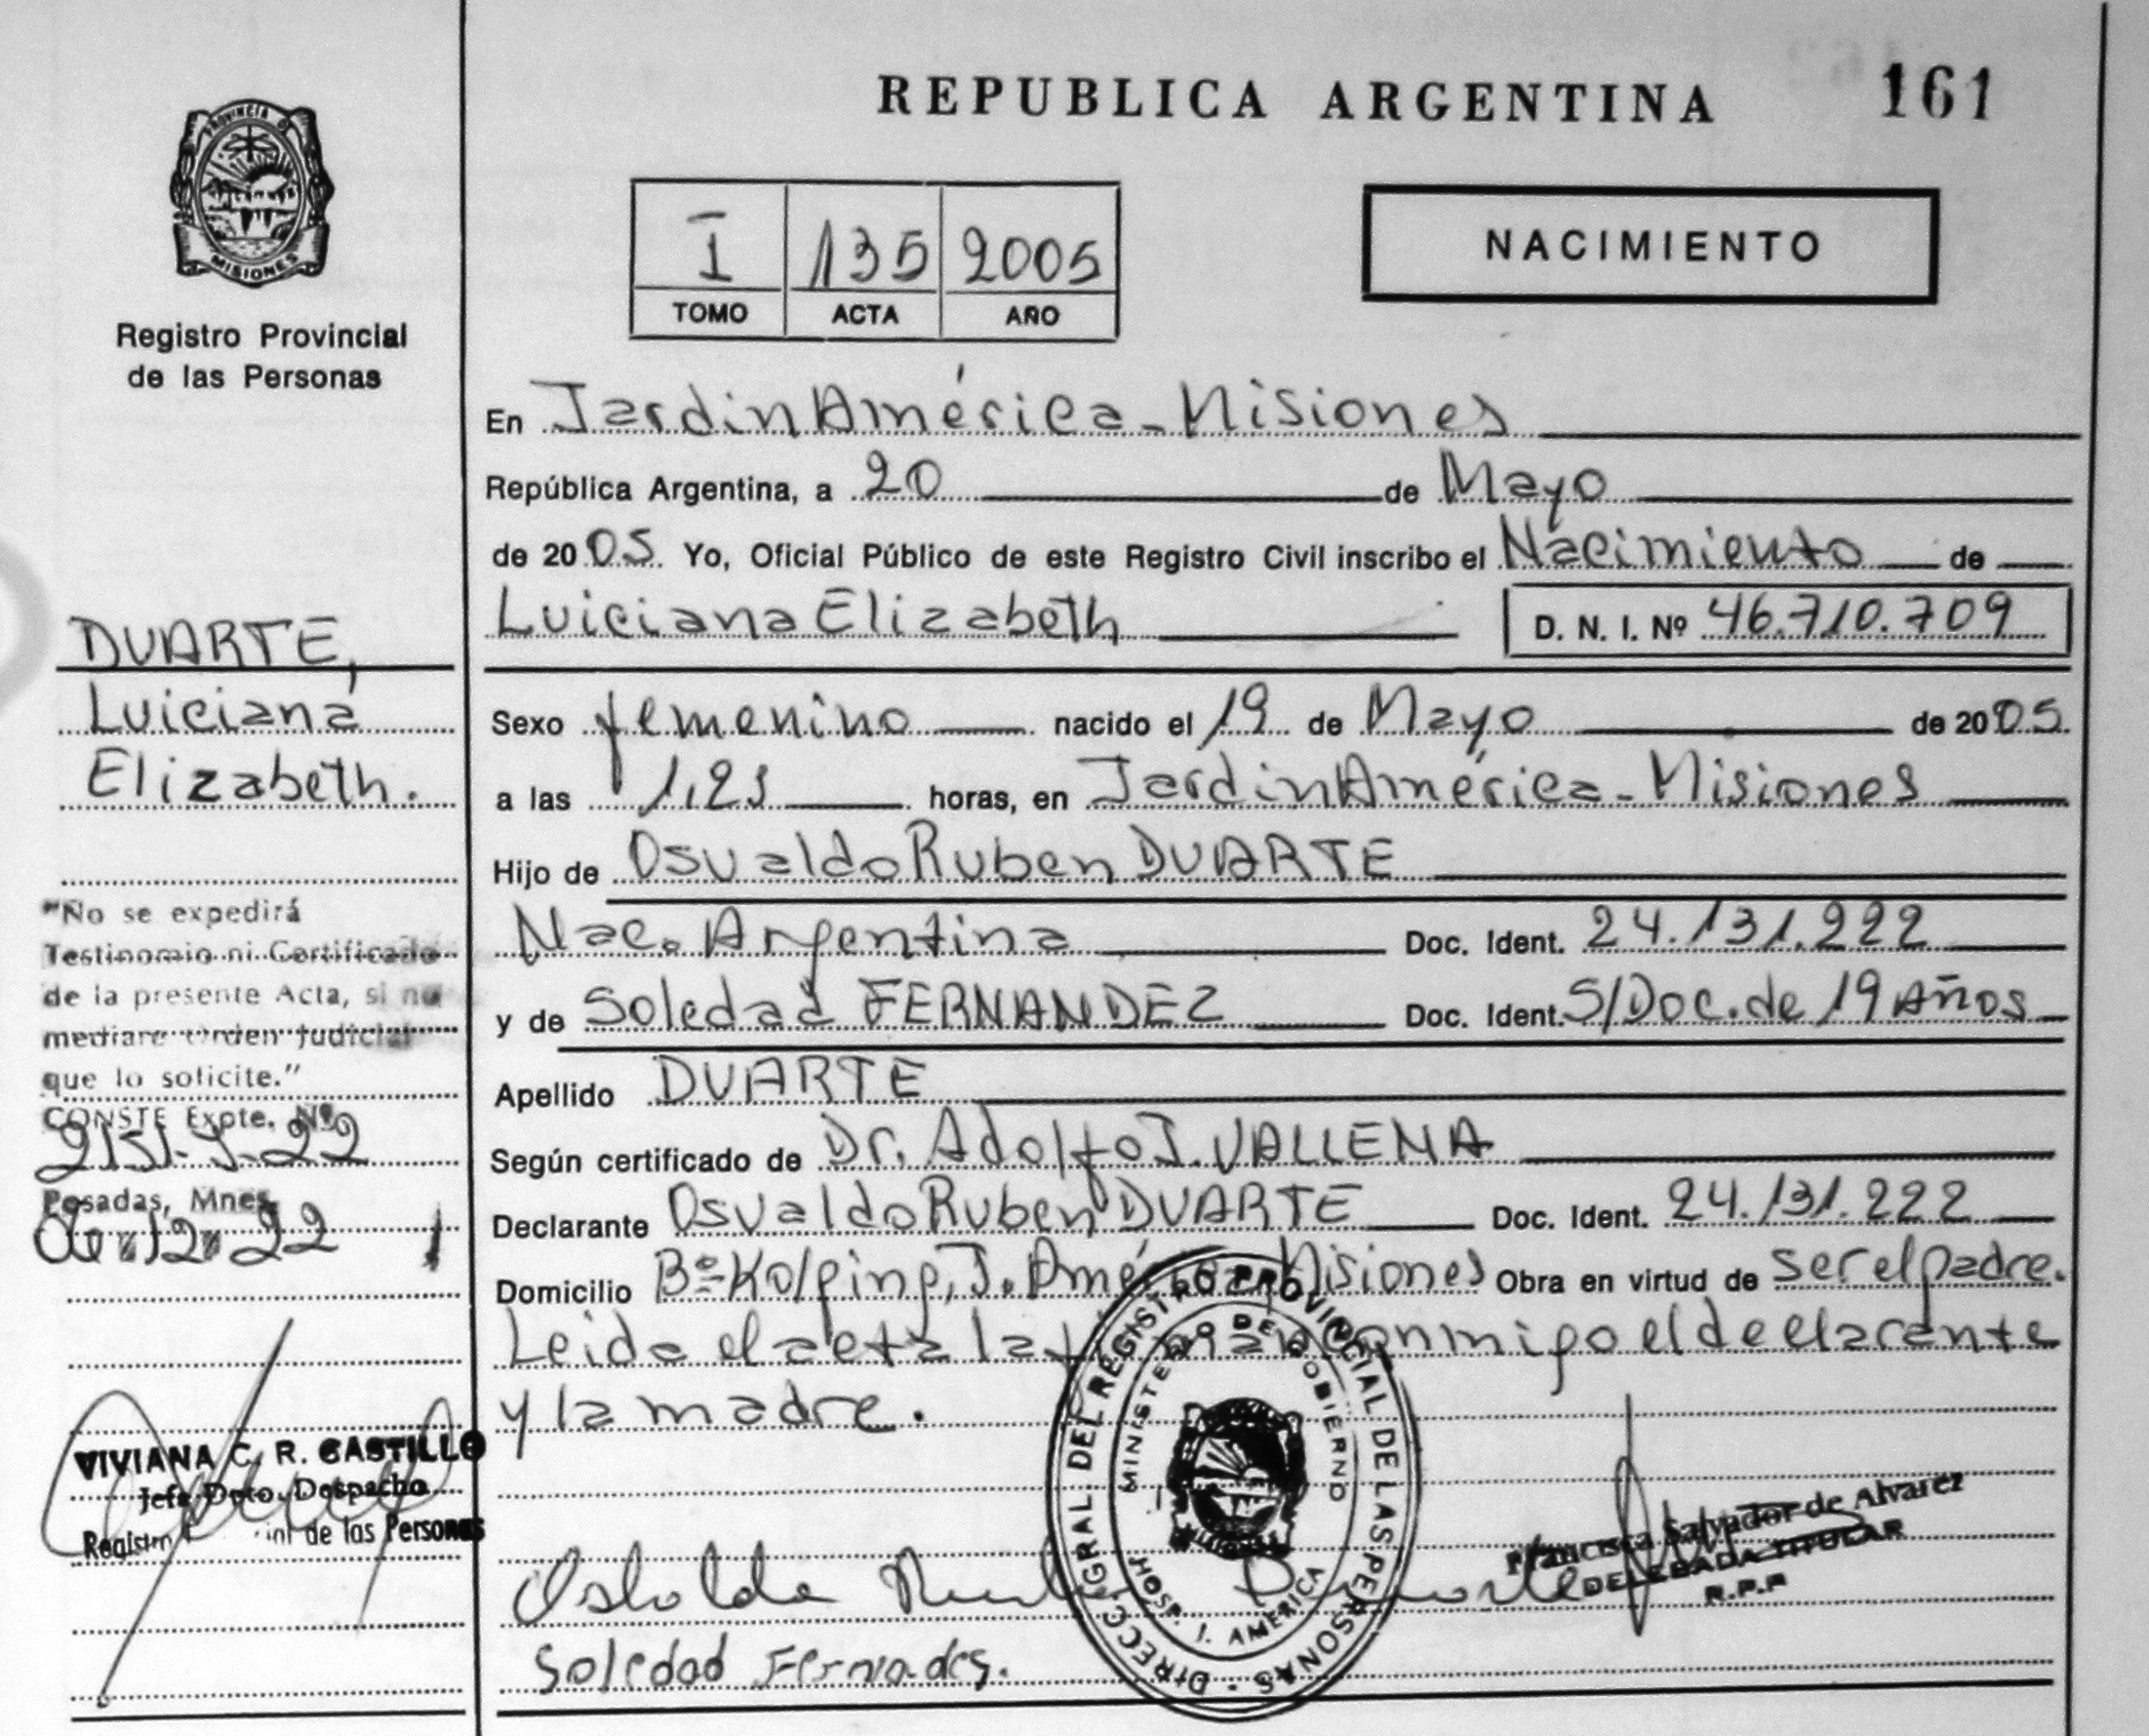 REPUBLICA ARGENTINA 161
PROVINCIA DE
MISIONES
Registro Provincial
de las Personas
I 135 2005
TOMO ACTA AÑO
NACIMIENTO
En Jardin América - Misiones
República Argentina, a 20 de Mayo
de 2005. Yo, Oficial Público de este Registro Civil inscribo el Nacimiento de
Luiciana Elizabeth D. N. I. Nº 46.710.709
Sexo femenino nacido el 19 de Mayo de 2005.
a las horas, en Jardin América - Misiones
Hijo de Osvaldo Ruben DUARTE
Nac. Argentina Doc. Ident. 24.131.222
y de Soledad FERNANDEZ Doc. Ident. S/Doc. de 19 Años
Apellido DUARTE
Según certificado de Dr. Adolfo J. VALLENA
Declarante Osvaldo Ruben DUARTE Doc. Ident. 24.131.222
Domicilio Bº Kolping, J. América Misiones Obra en virtud de ser el padre.
Leida el acta la conmigo el declarante
y la madre.
DUARTE,
Luiciana
Elizabeth.
"No se expedirá
Testinomio ni Certificado
de la presente Acta, si no
mediare orden judicial
que lo solicite."
CONSTE Expte. Nº
Posadas, Mnes.
VIVIANA C. R. CASTILLO
Jefa Dpto. Despacho
Registro de las Personas
DIRECC. GRAL DEL REGISTRO PROVINCIAL DE LAS PERSONAS -
MINISTERIO DE GOBIERNO
HOSP. J. AMERICA
MISIONES
Francisca Salvador de Alvarez
DELEGADA TITULAR
R.P.P
Soledad Fernades.